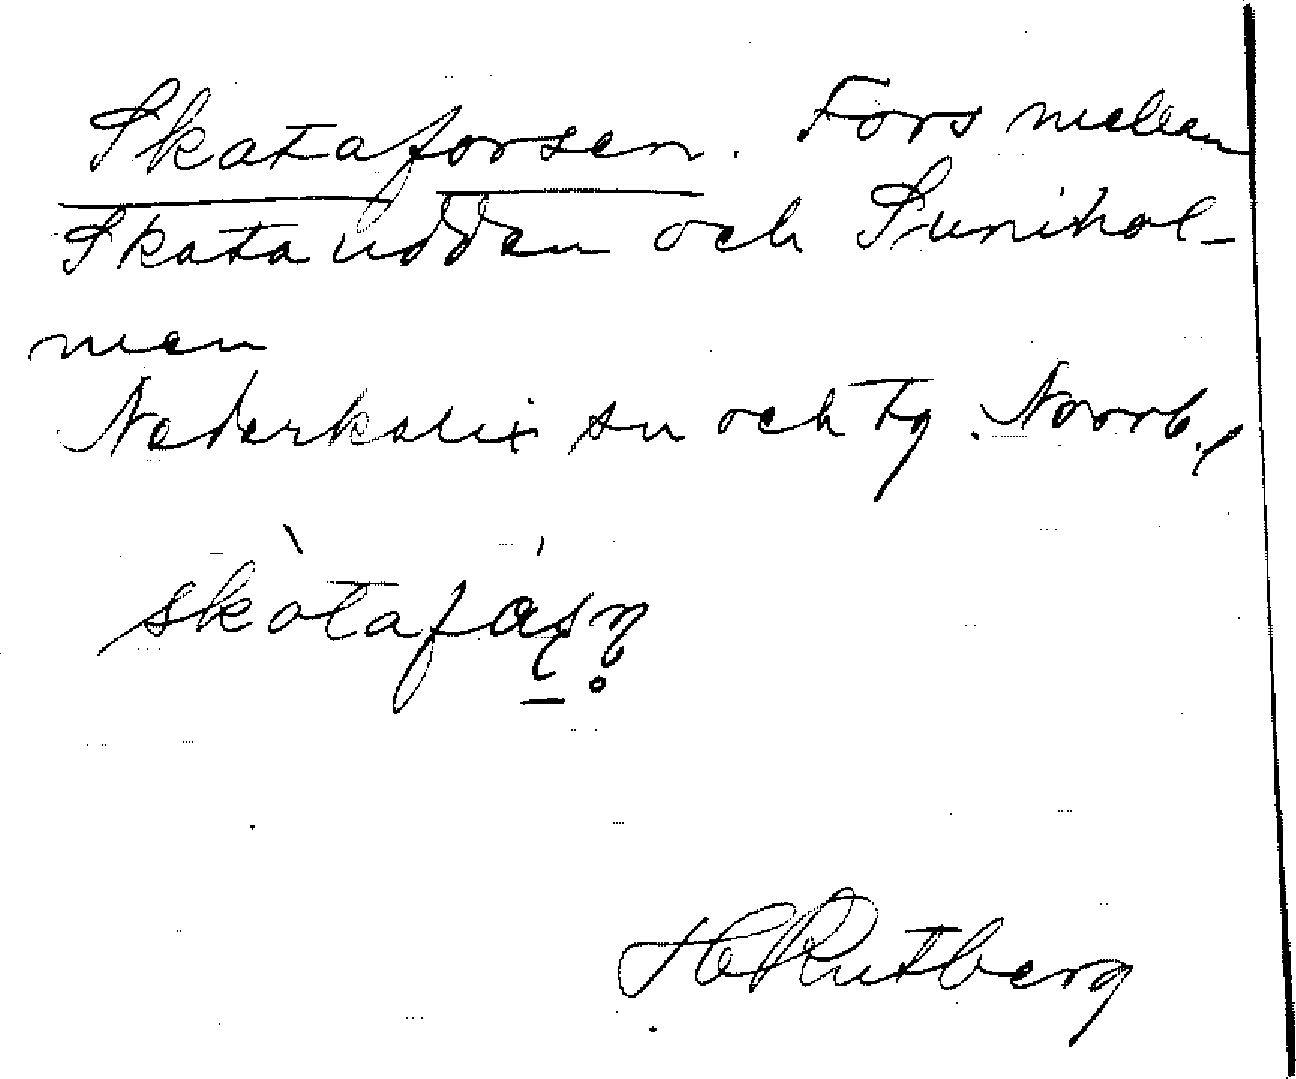 Skataforsen. Fors mellan
Skataudden och Sunihol-
men
Nederkalix sn och tg. Norrb. l
H Rutberg